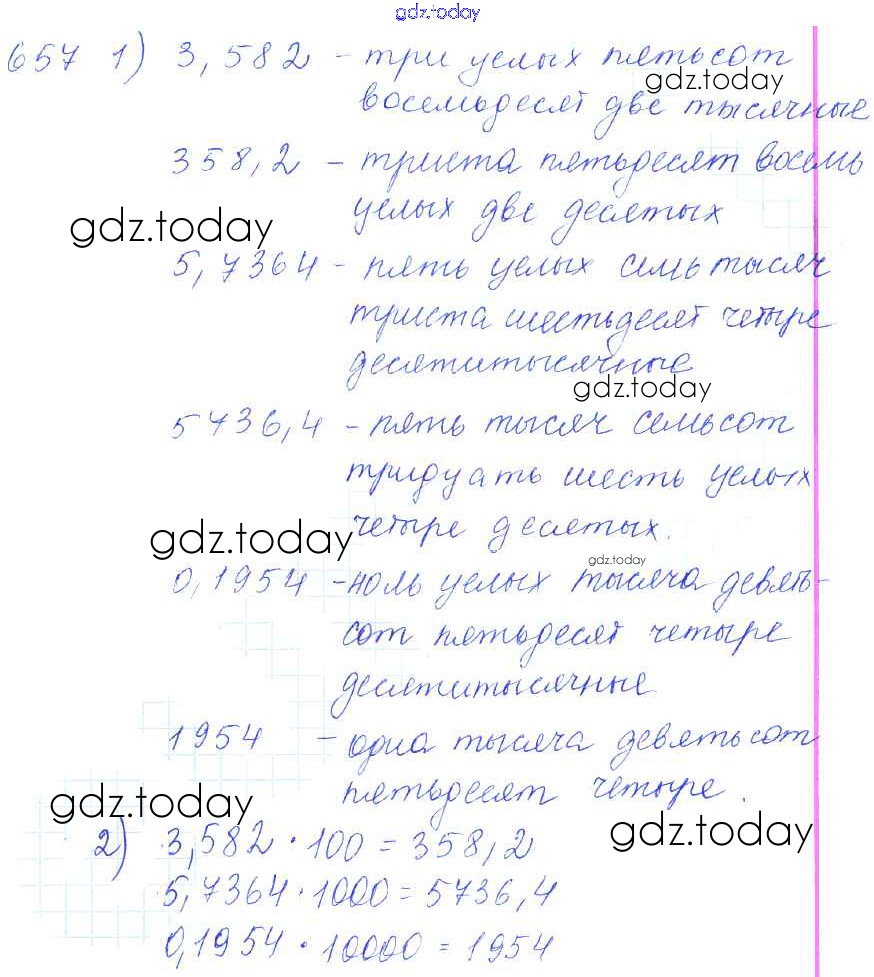 gdz.today
657 1) 3,582 - три целых пятьсот
gdz.today
восемьдесят две тысячные
358,2 - триста пятьдесят восемь
целых две десятых
gdz.today
5,7364 - пять целых семь тысяч
триста шестьдесят четыре
десятитысячные
gdz.today
5736,4 - пять тысяч семьсот
тридцать шесть целых
четыре десятых.
gdz.today
gdz.today
0,1954 - ноль целых тысяча девять-
сот пятьдесят четыре
десятитысячные
1954 - одна тысяча девятьсот
пятьдесят четыре.
gdz.today
gdz.today
2) 3,582 · 100 = 358,2
5,7364 · 1000 = 5736,4
0,1954 · 10000 = 1954